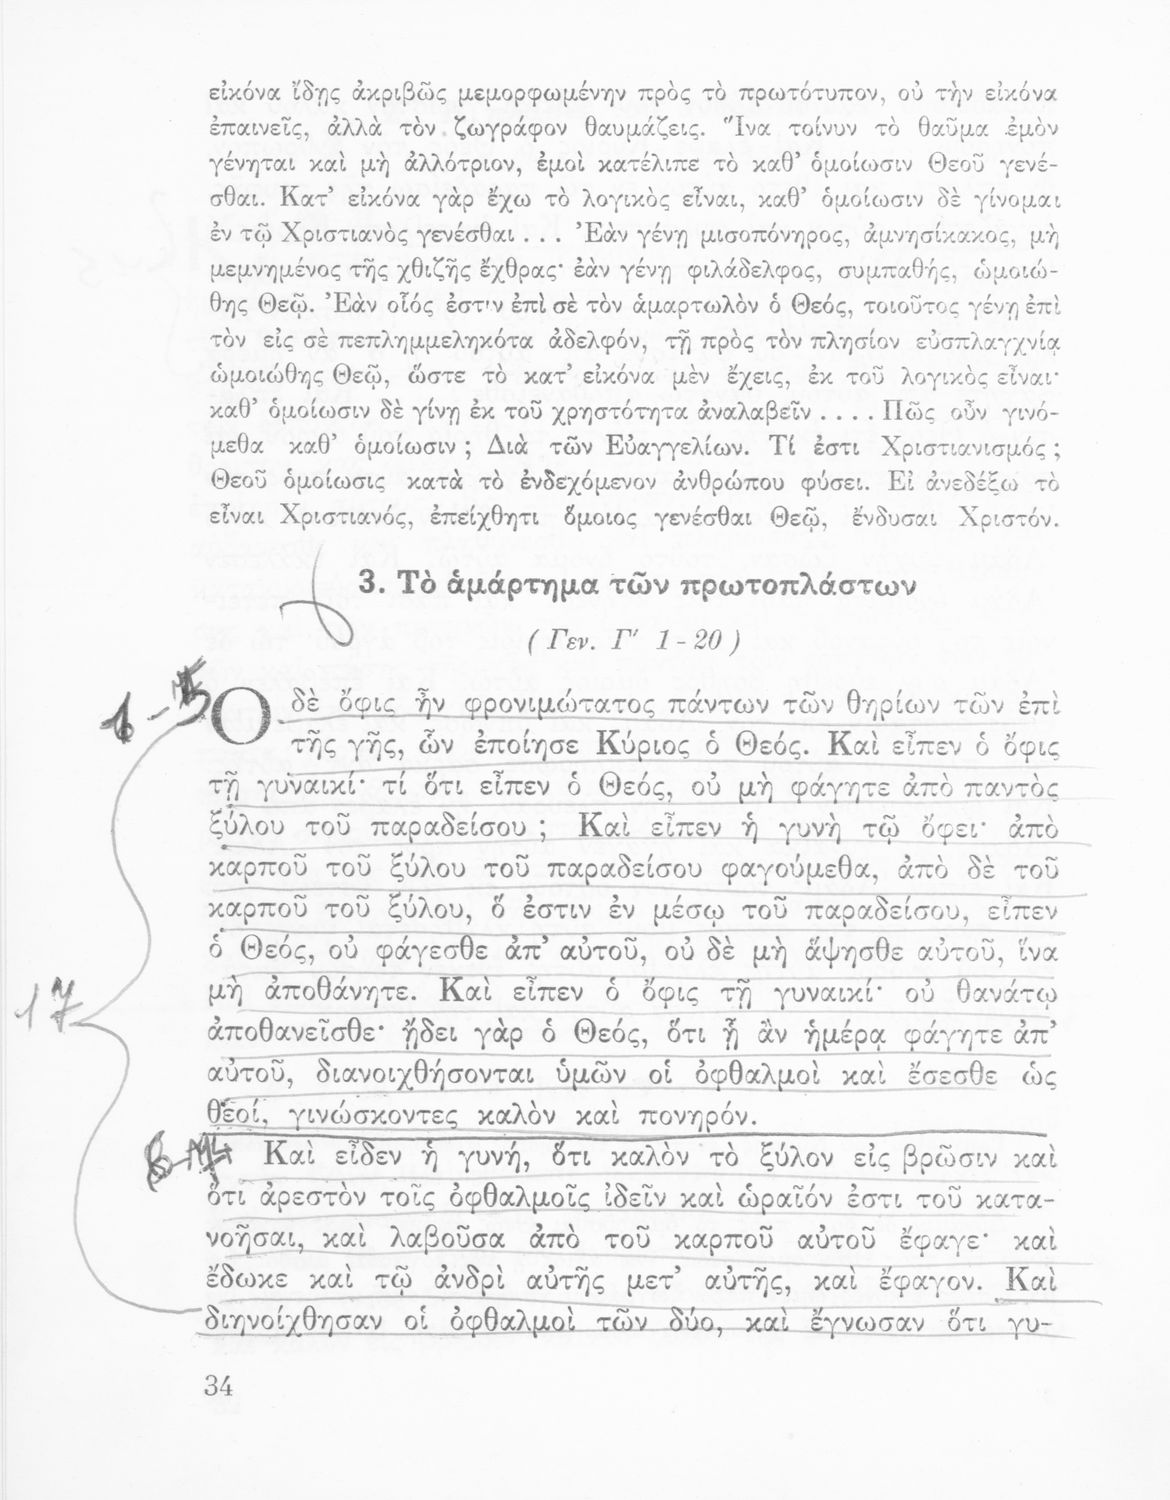 εἰκόνα ἴδῃς ἀκριβῶς μεμορφωμένην πρὸς τὸ πρωτότυπον, οὐ τὴν εἰκόνα
ἐπαινεῖς, ἀλλὰ τὸν ζωγράφον θαυμάζεις. Ἵνα τοίνυν τὸ θαῦμα ἐμὸν
γένηται καὶ μὴ ἀλλότριον, ἐμοὶ κατέλιπε τὸ καθ’ ὁμοίωσιν Θεοῦ γενέ-
σθαι. Κατ’ εἰκόνα γὰρ ἔχω τὸ λογικὸς εἶναι, καθ’ ὁμοίωσιν δὲ γίνομαι
ἐν τῷ Χριστιανὸς γενέσθαι . . . Ἐὰν γένῃ μισοπόνηρος, ἀμνησίκακος, μὴ
μεμνημένος τῆς χθιζῆς ἔχθρας· ἐὰν γένῃ φιλάδελφος, συμπαθής, ὡμοιώ-
θης Θεῷ. Ἐὰν οἷός ἐστιν ἐπὶ σὲ τὸν ἁμαρτωλὸν ὁ Θεός, τοιοῦτος γένῃ ἐπὶ
τὸν εἰς σὲ πεπλημμεληκότα ἀδελφόν, τῇ πρὸς τὸν πλησίον εὐσπλαγχνίᾳ
ὡμοιώθης Θεῷ, ὥστε τὸ κατ’ εἰκόνα μὲν ἔχεις, ἐκ τοῦ λογικὸς εἶναι·
καθ’ ὁμοίωσιν δὲ γίνῃ ἐκ τοῦ χρηστότητα ἀναλαβεῖν . . . . Πῶς οὖν γινό-
μεθα καθ’ ὁμοίωσιν ; Διὰ τῶν Εὐαγγελίων. Τί ἐστι Χριστιανισμός ;
Θεοῦ ὁμοίωσις κατὰ τὸ ἐνδεχόμενον ἀνθρώπου φύσει. Εἰ ἀνεδέξω τὸ
εἶναι Χριστιανός, ἐπείχθητι ὅμοιος γενέσθαι Θεῷ, ἔνδυσαι Χριστόν.
3. Τὸ ἁμάρτημα τῶν πρωτοπλάστων
( Γεν. Γ′ 1 - 20 )
Ο δὲ ὄφις ἦν φρονιμώτατος πάντων τῶν θηρίων τῶν ἐπὶ
τῆς γῆς, ὧν ἐποίησε Κύριος ὁ Θεός. Καὶ εἶπεν ὁ ὄφις
τῇ γυναικί· τί ὅτι εἶπεν ὁ Θεός, οὐ μὴ φάγητε ἀπὸ παντὸς
ξύλου τοῦ παραδείσου ; Καὶ εἶπεν ἡ γυνὴ τῷ ὄφει· ἀπὸ
καρποῦ τοῦ ξύλου τοῦ παραδείσου φαγούμεθα, ἀπὸ δὲ τοῦ
καρποῦ τοῦ ξύλου, ὅ ἐστιν ἐν μέσῳ τοῦ παραδείσου, εἶπεν
ὁ Θεός, οὐ φάγεσθε ἀπ’ αὐτοῦ, οὐ δὲ μὴ ἅψησθε αὐτοῦ, ἵνα
μὴ ἀποθάνητε. Καὶ εἶπεν ὁ ὄφις τῇ γυναικί· οὐ θανάτῳ
ἀποθανεῖσθε· ᾔδει γὰρ ὁ Θεός, ὅτι ᾗ ἂν ἡμέρᾳ φάγητε ἀπ’
αὐτοῦ, διανοιχθήσονται ὑμῶν οἱ ὀφθαλμοὶ καὶ ἔσεσθε ὡς
θεοί, γινώσκοντες καλὸν καὶ πονηρόν.
17
Καὶ εἶδεν ἡ γυνή, ὅτι καλὸν τὸ ξύλον εἰς βρῶσιν καὶ
ὅτι ἀρεστὸν τοῖς ὀφθαλμοῖς ἰδεῖν καὶ ὡραῖόν ἐστι τοῦ κατα-
νοῆσαι, καὶ λαβοῦσα ἀπὸ τοῦ καρποῦ αὐτοῦ ἔφαγε· καὶ
ἔδωκε καὶ τῷ ἀνδρὶ αὐτῆς μετ’ αὐτῆς, καὶ ἔφαγον. Καὶ
διηνοίχθησαν οἱ ὀφθαλμοὶ τῶν δύο, καὶ ἔγνωσαν ὅτι γυ-
34